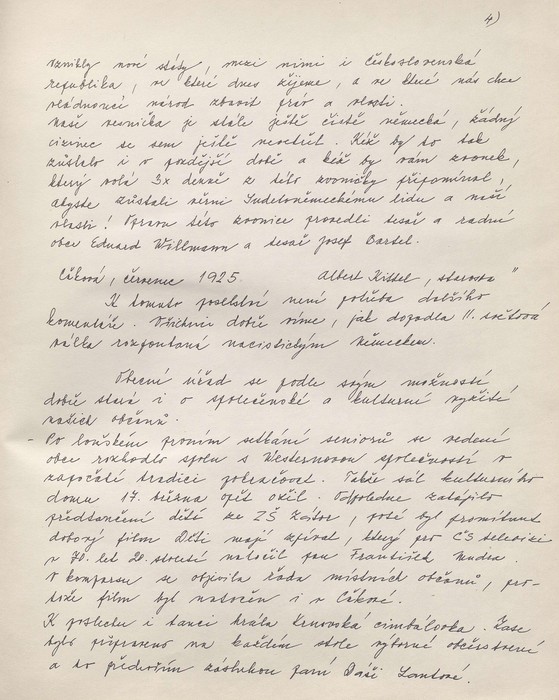 4)
vznikly nové státy, mezi nimi i Československá
republika, ve které dnes žijeme, a ve které nás chce
vládnoucí národ zbavit práv a vlasti.
Naše vesnička je stále ještě čistě německá, žádný
cizinec se sem ještě nevetřel. Kéž by to tak
zůstalo i v pozdější době a kéž by vám zvonek,
který volá 3x denně z této zvoničky připomínal,
abyste zůstali věrni Sudetoněmeckému lidu a naší
vlasti! Opravu této zvonice provedli tesař a radní
obce Eduard Willmann a tesař Josef Bartel.
Cáková, červenec 1925. Albert Kittel, starosta "
K tomuto poselství není potřeba dalšího
komentáře. Všichni dobře víme, jak dopadla II. světová
válka rozpoutaná nacistickým Německem.
Obecní úřad se podle svým možností
dobře stará i o společenské a kulturní vyžití
našich občanů.
- Po loňském prvním setkání seniorů se vedení
obce rozhodlo spolu s Westernovou společností v
započaté tradici pokračovat. Takže sál kulturního
domu 17. března opět ožil. Odpoledne zahájilo
předtančení dětí ze ZŠ Zátor, poté byl promítnut
dobový film Děti mají zpívat, který pro ČS televizi
v 70. let 20. století natočil pan František Mudra.
V komparsu se objevila řada místních občanů, pro-
tože film byl natočen i v Cákové.
K poslechu i tanci hrála Krnovská cimbálovka. Zase
bylo připraveno na každém stole výborné občerstvení
a to především zásluhou paní Dáši Lantové.